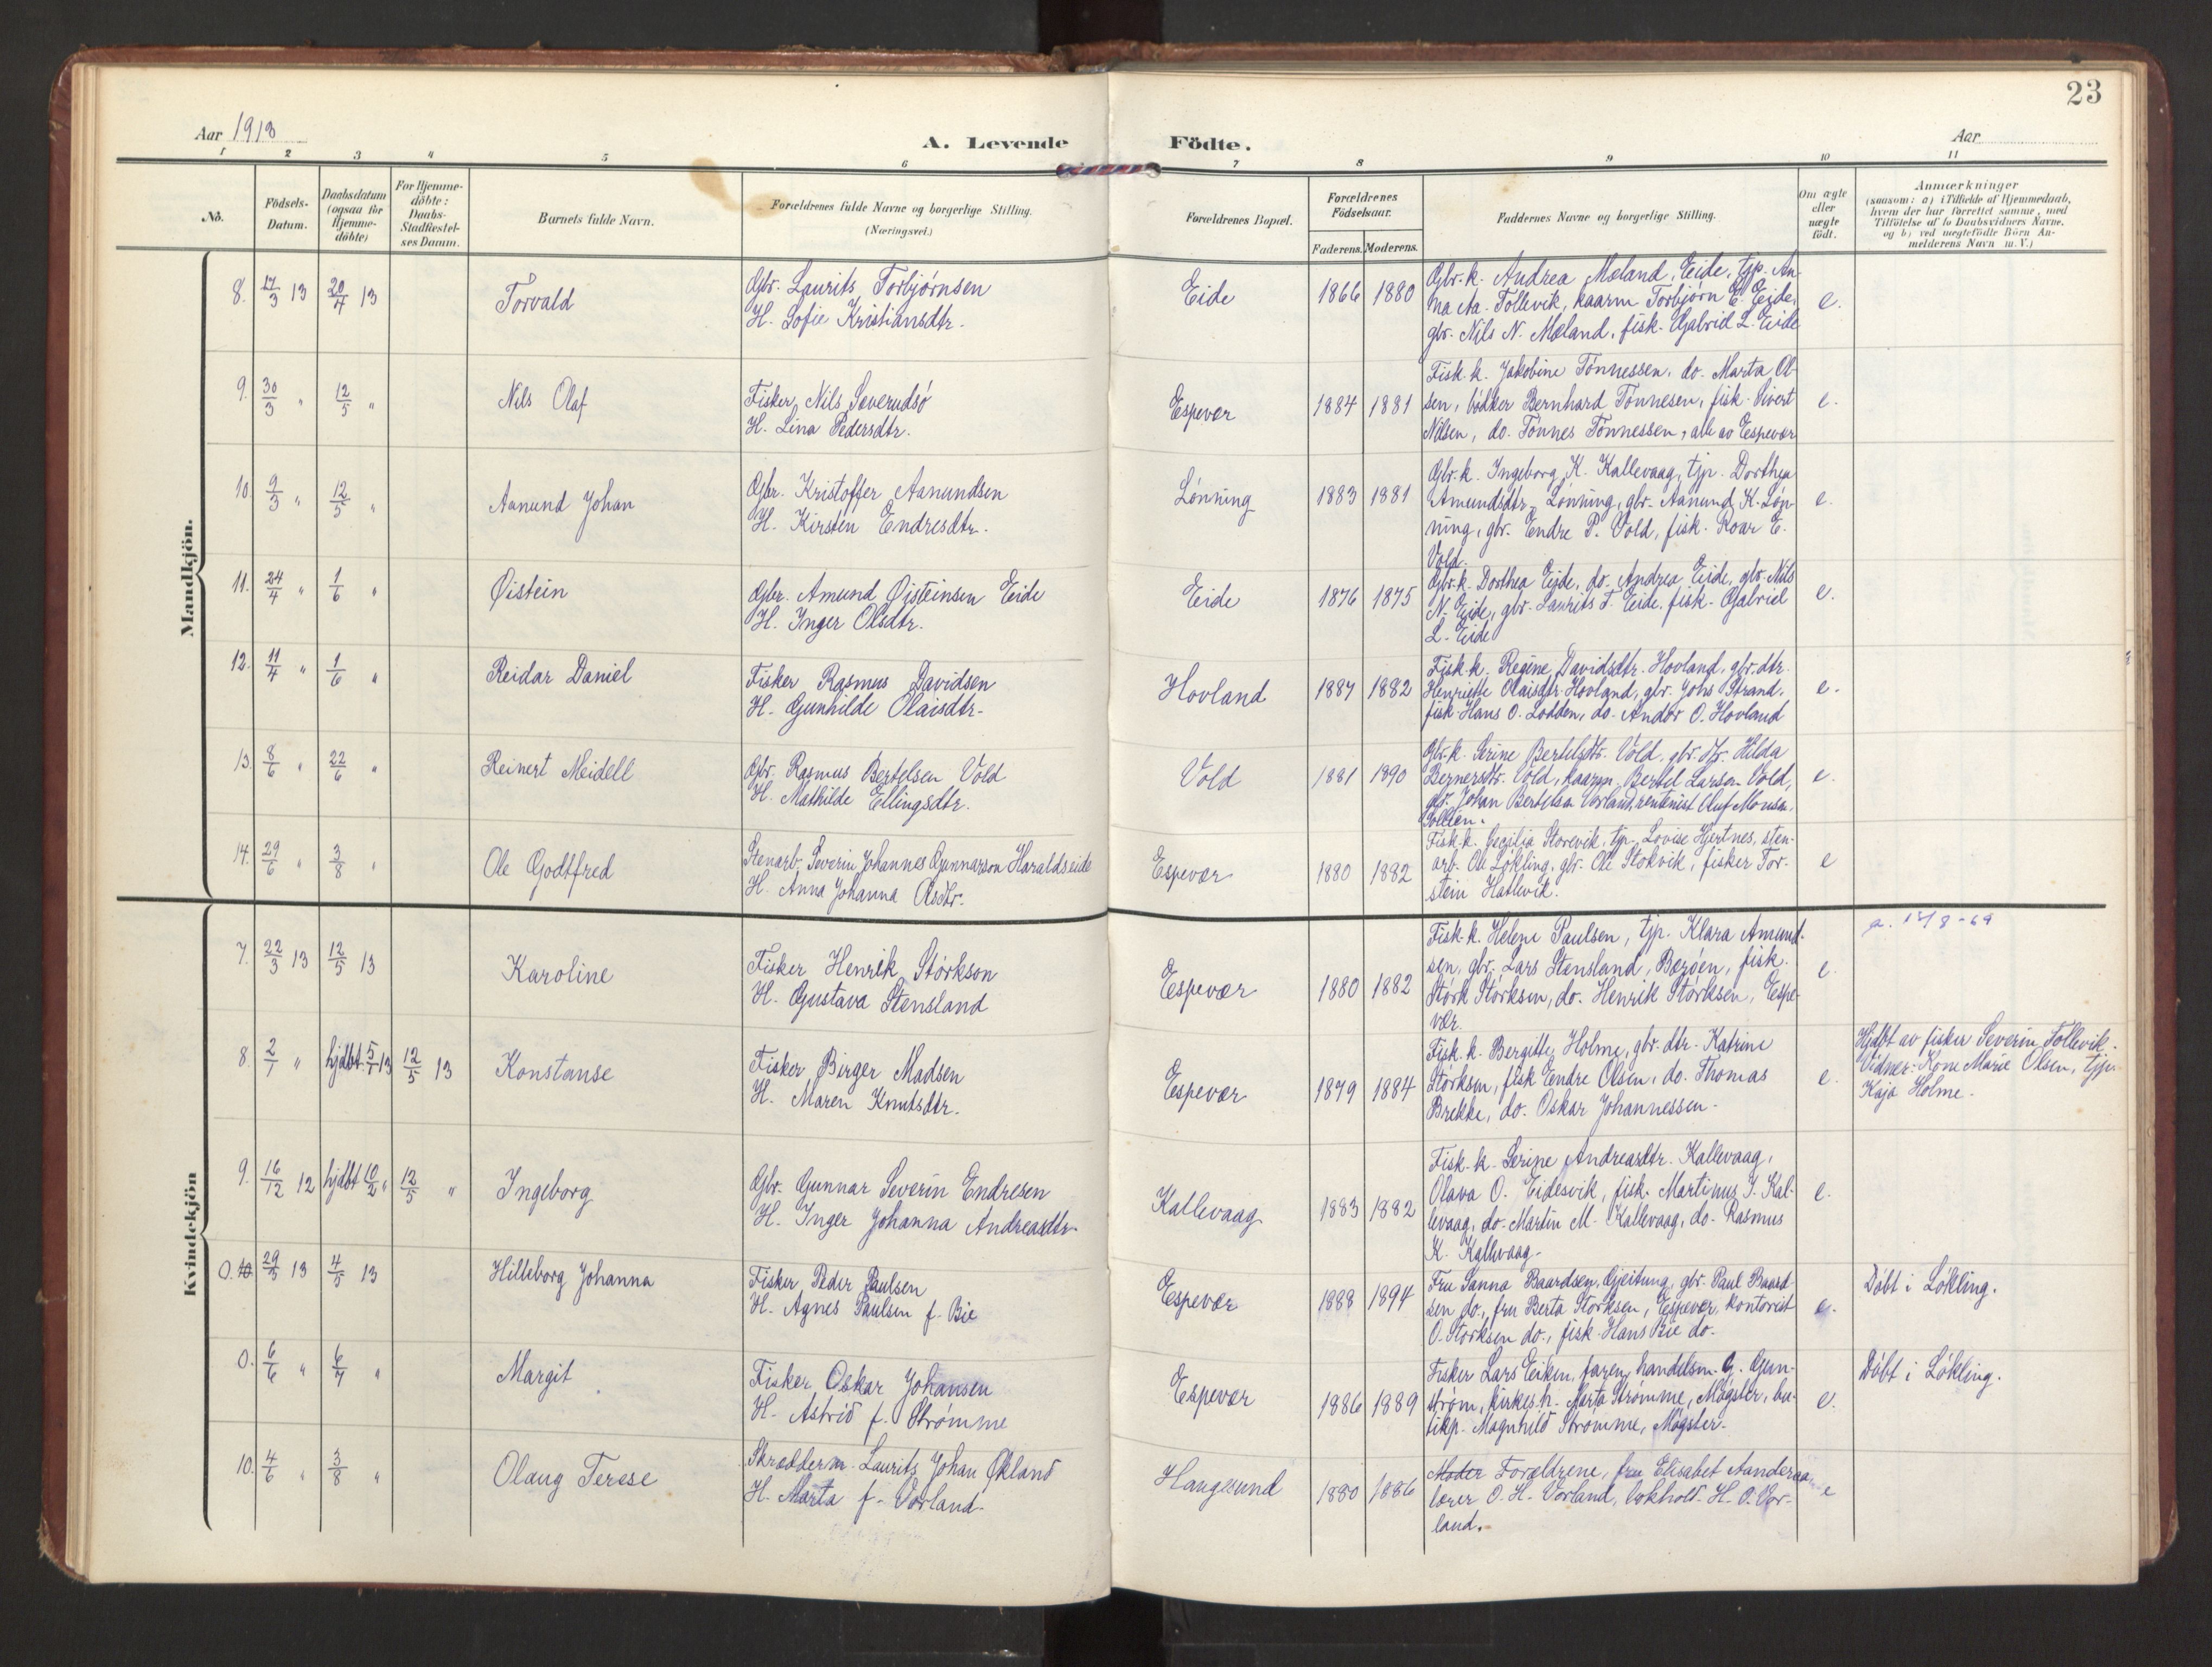 23
Aar 1913
A. Levende
Födte.
Aar
1 2 3 4 5 6 7 8 9 10 11
No.
Födsels-
Datum.
Daabsdatum
(ogsaa for
Hjemme-
döbte)
For Hjemme-
döbte:
Daabs-
Stadfæstel-
ses Datum.
Barnets fulde Navn.
Forældrenes fulde Navne og borgerlige Stilling.
(Næringsvei.)
Forældrenes Bopæl.
Forældrenes
Födselsaar.
Faderens. Moderens.
Faddernes Navne og borgerlige Stilling.
Om ægte
eller
uægte
födt.
Anmærkninger
(saasom: a) i Tilfælde af Hjemmedaab,
hvem der har forrettet samme, med
Tilföielse af to Daabsvidners Navne,
og b) ved uægtefödte Börn An-
melderens Navn m. V.)
Mandkjön.
8. 17/3 13 20/4 13
Torvald
Gbr. Laurits Torbjørnsen
H. Sofie Kristiansdtr.
Eide
1866 1880
Gbr.k. Andrea Mæland, Eide, tjp. An-
na Aa. Follevik, kaarm. Torbjørn E. Eide,
gbr. Nils N. Mæland, fisk. Gabriel L. Eide
e.
9. 30/3 " 12/5 "
Nils Olaf
Fisker Nils Søverudsø
H. Lina Pedersdtr.
Espevær
1884 1881
Fisk.k. Jakobine Tønnessen, do. Marta Ol-
sen, bødker Bernhard Tønnesen, fisk. Sivert
Nilsen, do. Tønnes Tønnessen, alle av Espevær
e.
10. 9/3 " 12/5 "
Aanund Johan
Gbr. Kristoffer Aanundsen
H. Kirsten Endresdtr.
Lønning
1883 1881
Gbr.k. Ingeborg K. Kallevaag, tjp. Dorthea
Amundsdtr. Lønning, gbr. Aanund K. Løn-
ning, gbr. Endre P. Vold, fisk. Roar E.
Vold.
e.
11. 24/4 " 1/6 "
Øistein
Gbr. Amund Øisteinsen Eide
H. Inger Olsdtr.
Eide
1876 1875
Gbr.k. Dorthea Eide, do. Andrea Eide, gbr. Nils
N. Eide, gbr. Laurits T. Eide, fisk. Gabriel
L. Eide
e.
12. 11/4 " 1/6 "
Reidar Daniel
Fisker Rasmus Davidsen
H. Gunhilde Olaisdtr.
Hovland
1887 1882
Fisk.k. Regine Davidsdtr. Hovland, gbr.dtr.
Henriette Olaisdtr. Hovland, gbr. Johs Strand,
fisk. Hans O. Lodden, do. Andor O. Hovland
e.
13. 8/6 " 22/6 "
Reinert Meidell
Gbr. Rasmus Bertelsen Vold
H. Mathilde Ellingsdtr.
Vold
1881 1890
Gbr.k. Serine Bertelsdtr. Vold, gbr. dtr. Hilda
Bernersdtr. Vold, kaarm. Bertel Larsen Vold,
gbr. Johan Bertelsen Vorland, rentenist Oluf Monsen
e.
14. 29/6 " 3/8 "
Ole Godtfred
Stenarb. Severin Johannes Gunnarson Haraldseide
H. Anna Johanna Olsdtr.
Espevær
1880 1882
Fisk.k. Cecilia Storevik, tjp. Lovise Hjertnes, sten-
arb. Ole Løkling, gbr. Ole Stokvik, fisker Tor-
stein Hatlevik.
e
Kvindekjön
7. 22/3 13 12/5 13
Karoline
Fisker Henrik Størkson
H. Gustava Stensland
Espevær
1880 1882
Fisk.k. Helene Paulsen, tjp. Klara Amund-
sen, gbr. Lars Stensland, Berøen, fisk.
Størk Størksen, do. Henrik Størksen, Espe-
vær.
e.
8. 2/1 " hjdbt. 5/1 13 12/5 13
Konstanse
Fisker Birger Madsen
H. Maren Knutsdtr.
Espevær
1879 1884
Fisk.k. Bergitte Holme, gbr. dtr. Katrine
Størksen, fisk Endre Olsen, do. Thomas
Brekke, do. Oskar Johannessen.
e.
Hjdbt av fisker Severin Follevik.
Vidner: Kone Marie Olsen, tjp.
Kaja Holme.
9. 16/12 12 hjdbt 10/2 " 12/5 "
Ingeborg
Gbr. Gunnar Severin Endresen
H. Inger Johanna Andreasdtr.
Kallevaag
1883 1882
Fisk.k. Serine Andreasdtr. Kallevaag,
Olava O. Eidesvik, fisk. Martinus J. Kal-
levaag, do. Martin M. Kallevaag, do. Rasmus
K. Kallevaag.
e.
0. 10 29/3 13 4/5 13
Hilleborg Johanna
Fisker Peder Paulsen
H. Agnes Paulsen f. Bie
Espevær
1888 1894
Fru Sanna Baardsen, Gjeitung, gbr. Paul Baard-
sen do., fru Berta Størksen, Espevær, kontorist
O. Størksen do., fisk. Hans Bie do.
e.
Døbt i Løkling.
0. 6/6 " 6/7 "
Margit
Fisker Oskar Johansen
H. Astrid f. Strømme
Espevær
1886 1889
Fisker Lars Eiken, faren, handelsm. G. Gun-
strøm, kirkes.h. Marta Strømme, Møgster, bu-
tikp. Magnhild Strømme, Møgster.
e.
Døbt i Løkling.
10. 4/6 " 3/8 "
Olaug Terese
Skræderm. Laurits Johan Økland
H. Marta f. Vorland.
Haugesund
1880 1886
Moder Forældrene, fru Elisabet Aanderaa
lærer O. H. Vorland, bokhold. H. O. Vor-
land.
e